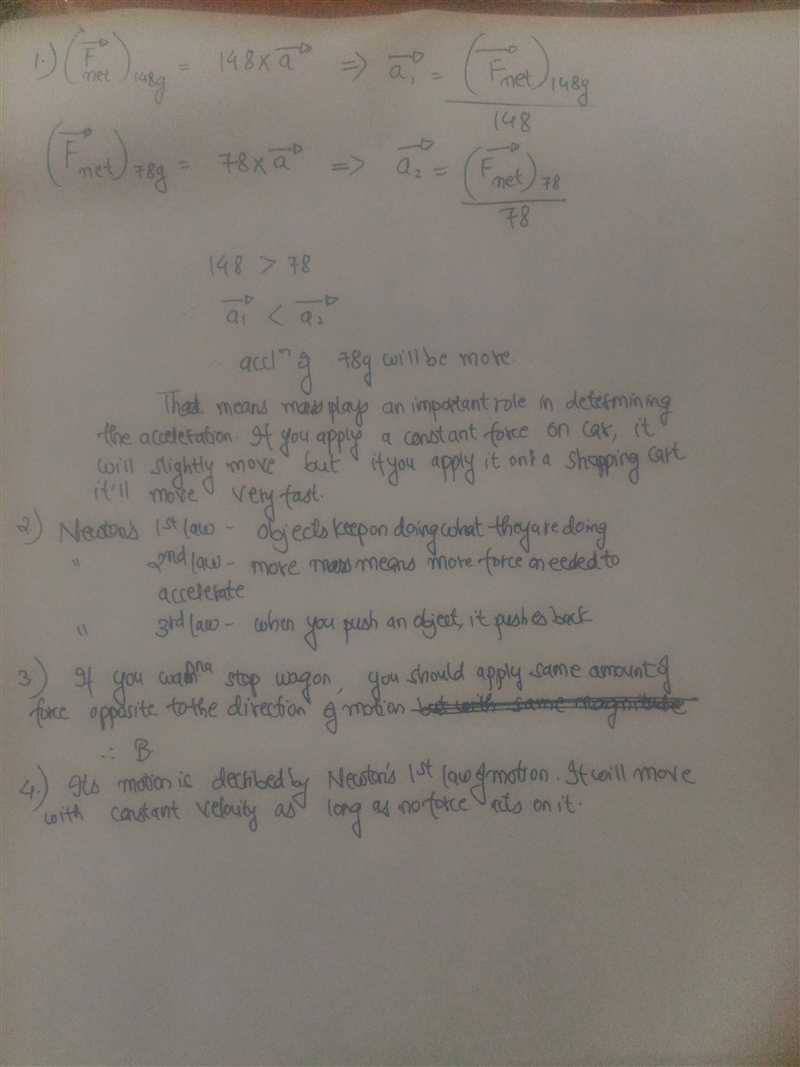 1.) (F⃗net)148g = 148 × a⃗ ⇒ a⃗₁ = (F⃗net)148g / 148
(F⃗net)78g = 78 × a⃗ ⇒ a⃗₂ = (F⃗net)78 / 78
148 > 78
a⃗₁ < a⃗₂
acclⁿ of 78g will be more.
That means mass plays an important role in determining
the acceleration. If you apply a constant force on car, it
will slightly move but if you apply it on a shopping cart
it'll move very fast.
2.) Newton's 1st law - objects keep on doing what they are doing
" 2nd law - more mass means more force needed to
accelerate
" 3rd law - when you push an object, it pushes back
3.) If you wanna stop wagon, you should apply same amount of
force opposite to the direction of motion but with same magnitude
∴ B.
4.) Its motion is decribed by Newton's 1st law of motion. It will move
with constant velocity as long as no force acts on it.